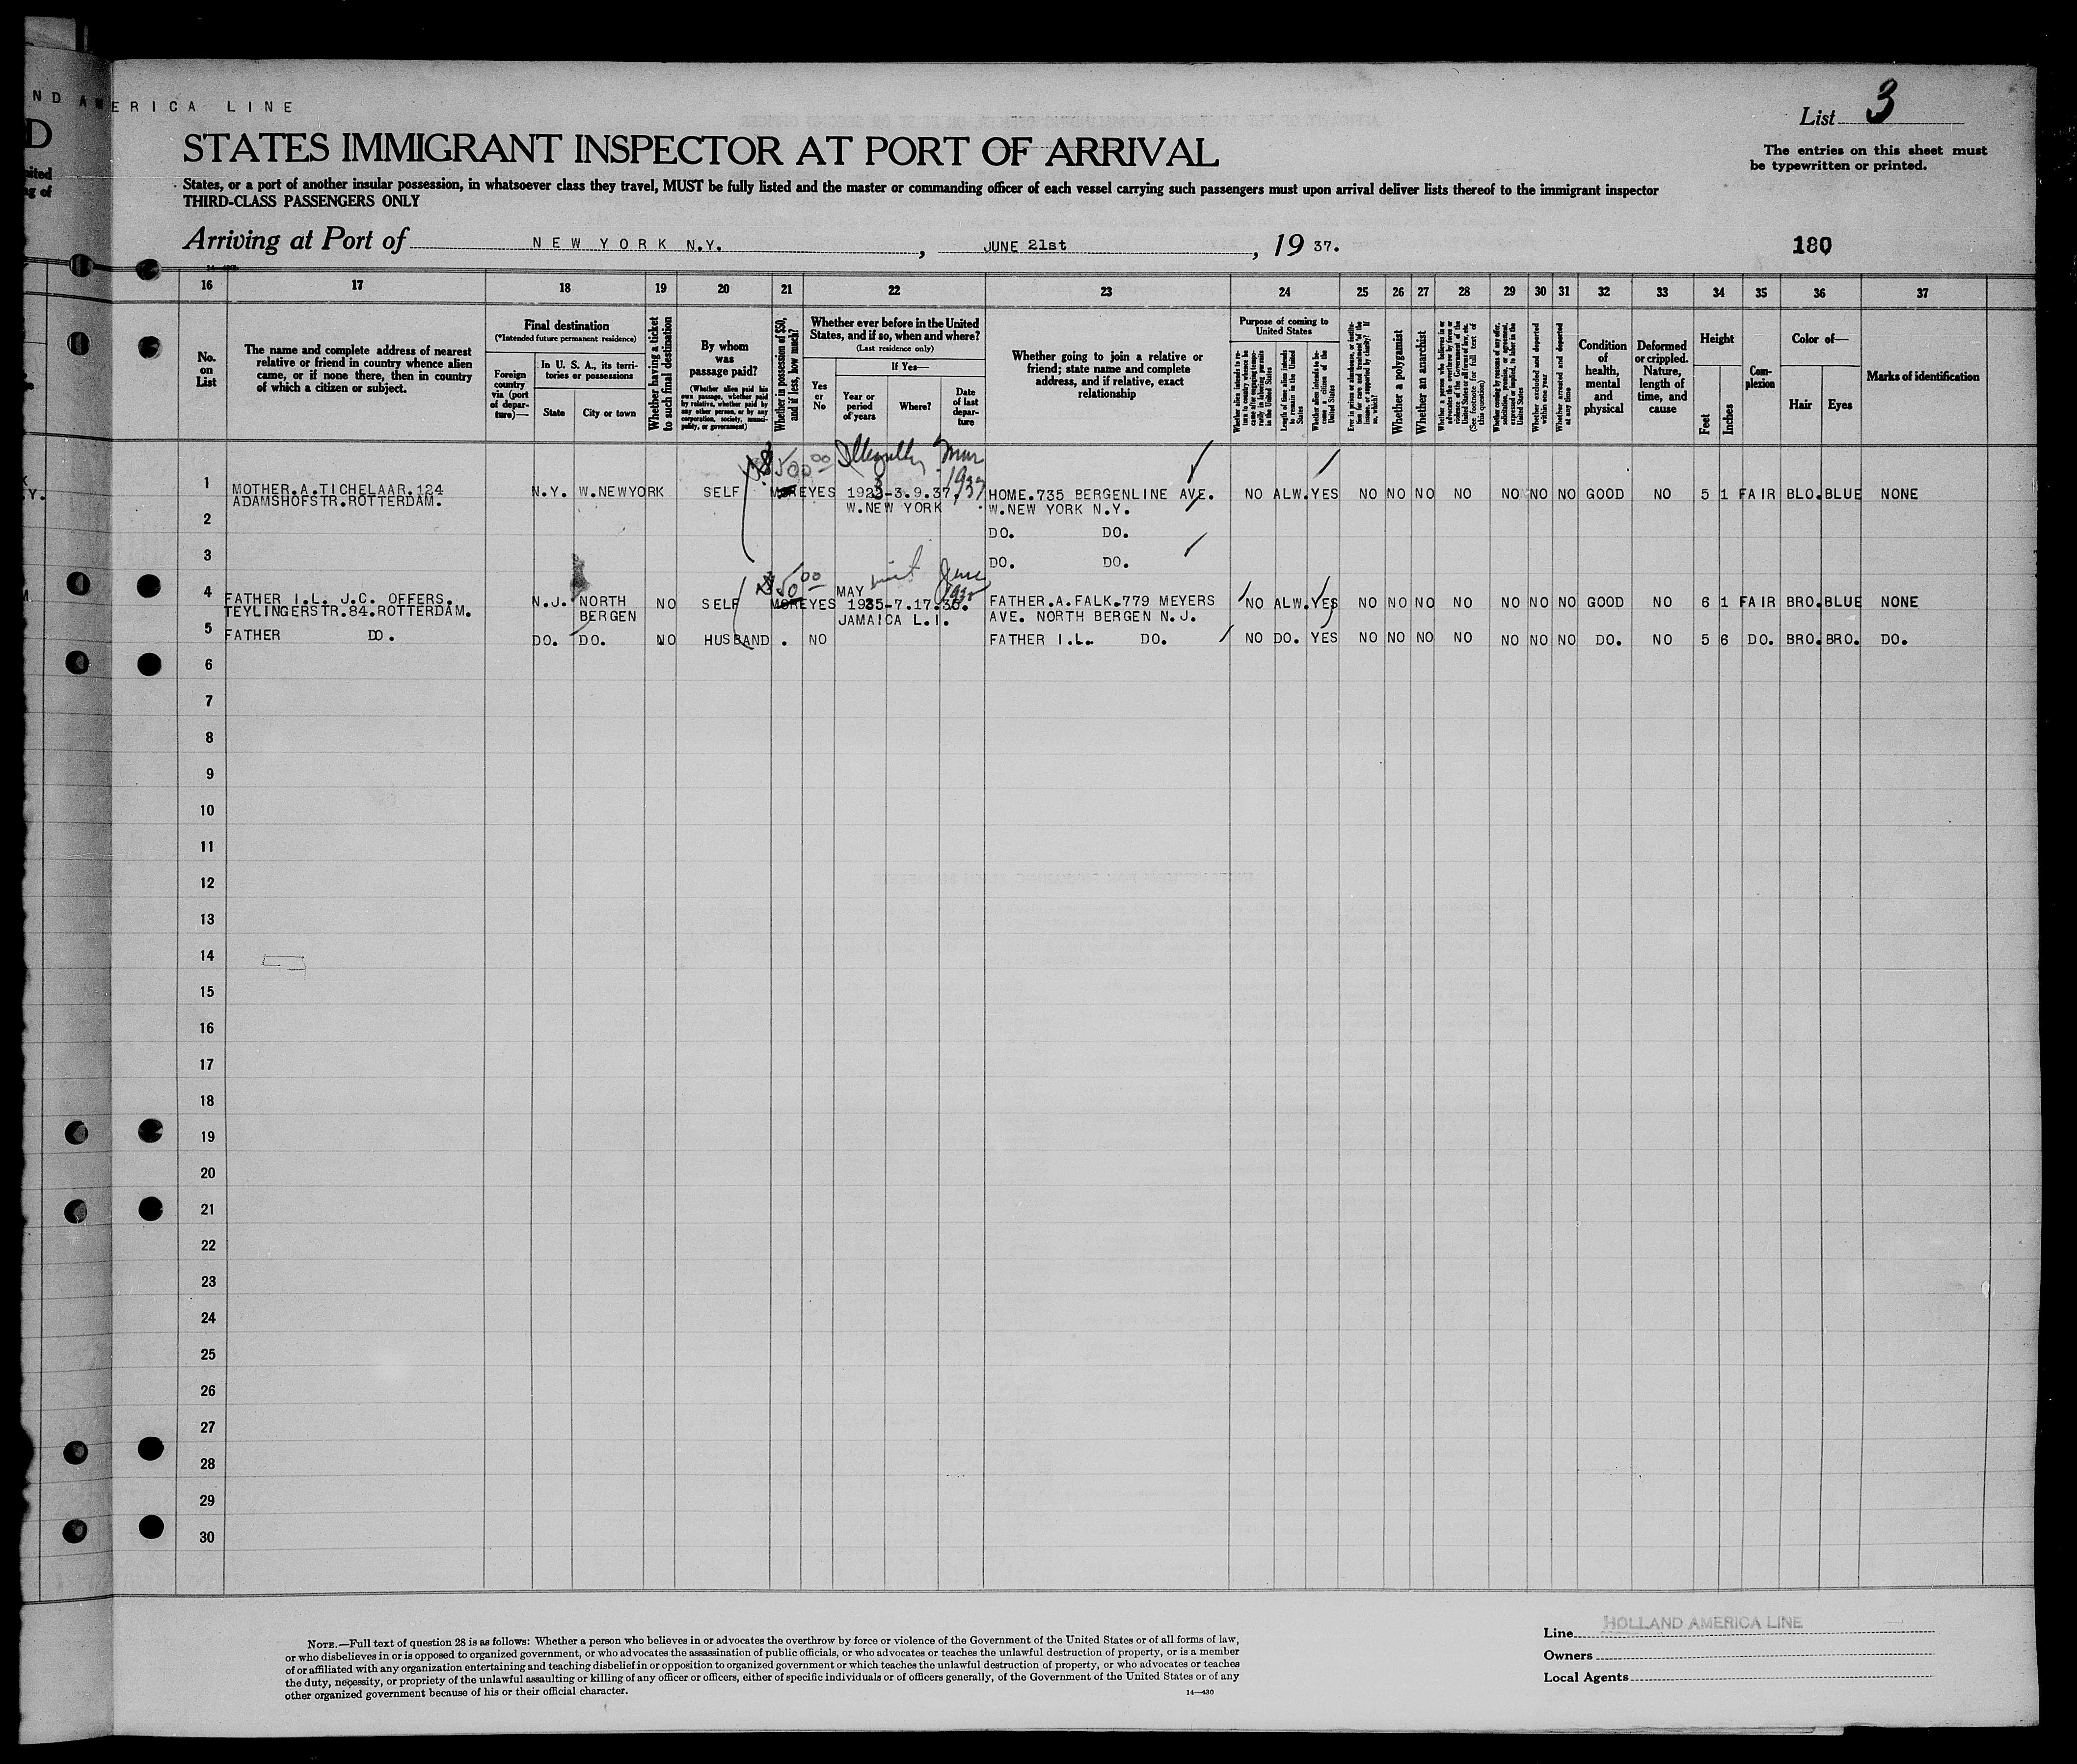 ND AMERICA LINE
D
List 3
STATES IMMIGRANT INSPECTOR AT PORT OF ARRIVAL
The entries on this sheet must
be typewritten or printed.
States, or a port of another insular possession, in whatsoever class they travel, MUST be fully listed and the master or commanding officer of each vessel carrying such passengers must upon arrival deliver lists thereof to the immigrant inspector
THIRD-CLASS PASSENGERS ONLY
Arriving at Port of NEW YORK N.Y., JUNE 21st, 19 37.
180
16 17 18 19 20 21 22 23 24 25 26 27 28 29 30 31 32 33 34 35 36 37
No. on List
The name and complete address of nearest relative or friend in country whence alien came, or if none there, then in country of which a citizen or subject.
Final destination
(*Intended future permanent residence)
Foreign country via (port of departure)—
In U. S. A., its territories or possessions
State
City or town
Whether having a ticket to such final destination
By whom was passage paid?
(Whether alien paid his own passage, whether paid by relative, whether paid by any other person, or by any corporation, society, municipality, or government)
Whether in possession of $50, and if less, how much?
Whether ever before in the United States, and if so, when and where?
(Last residence only)
Yes or No
If Yes—
Year or period of years
Where?
Date of last departure
Whether going to join a relative or friend; state name and complete address, and if relative, exact relationship
Purpose of coming to United States
Length of time alien intends to remain in the United States
Whether alien intends to become a citizen of the United States
Whether a polygamist
Whether an anarchist
(See footnote for full text of this question)
Whether excluded and deported within one year
Whether arrested and deported at any time
Condition of health, mental and physical
Deformed or crippled. Nature, length of time, and cause
Height
Feet
Inches
Complexion
Color of—
Hair
Eyes
Marks of identification
500 00 Illegally Mar 1937
1 MOTHER.A.TICHELAAR.124 N.Y. W.NEWYORK SELF YES 1923-3.9.37. HOME.735 BERGENLINE AVE. NO ALW. YES NO NO NO NO NO NO NO GOOD NO 5 1 FAIR BLO. BLUE NONE
ADAMSHOFSTR.ROTTERDAM. W.NEW YORK W.NEW YORK N.Y.
2 DO. DO.
3 DO. DO.
50 00 MAY visit June
4 FATHER I.L. J.C. OFFERS. N.J. NORTH NO SELF YES 1935-7.17.35. FATHER.A.FALK.779 MEYERS NO ALW. YES NO NO NO NO NO NO NO GOOD NO 6 1 FAIR BRO. BLUE NONE
TEYLINGERSTR.84.ROTTERDAM. BERGEN JAMAICA L.I. AVE. NORTH BERGEN N.J.
5 FATHER DO. DO. DO. NO HUSBAND . NO FATHER I.L. DO. NO DO. YES NO NO NO NO NO NO NO DO. NO 5 6 DO. BRO. BRO. DO.
6
7
8
9
10
11
12
13
14
15
16
17
18
19
20
21
22
23
24
25
26
27
28
29
30
NOTE.—Full text of question 28 is as follows: Whether a person who believes in or advocates the overthrow by force or violence of the Government of the United States or of all forms of law,
or who disbelieves in or is opposed to organized government, or who advocates the assassination of public officials, or who advocates or teaches the unlawful destruction of property, or is a member
of or affiliated with any organization entertaining and teaching disbelief in or opposition to organized government or which teaches the unlawful destruction of property, or who advocates or teaches
the duty, necessity, or propriety of the unlawful assaulting or killing of any officer or officers, either of specific individuals or of officers generally, of the Government of the United States or of any
other organized government because of his or their official character.
14—430
Line HOLLAND AMERICA LINE
Owners
Local Agents